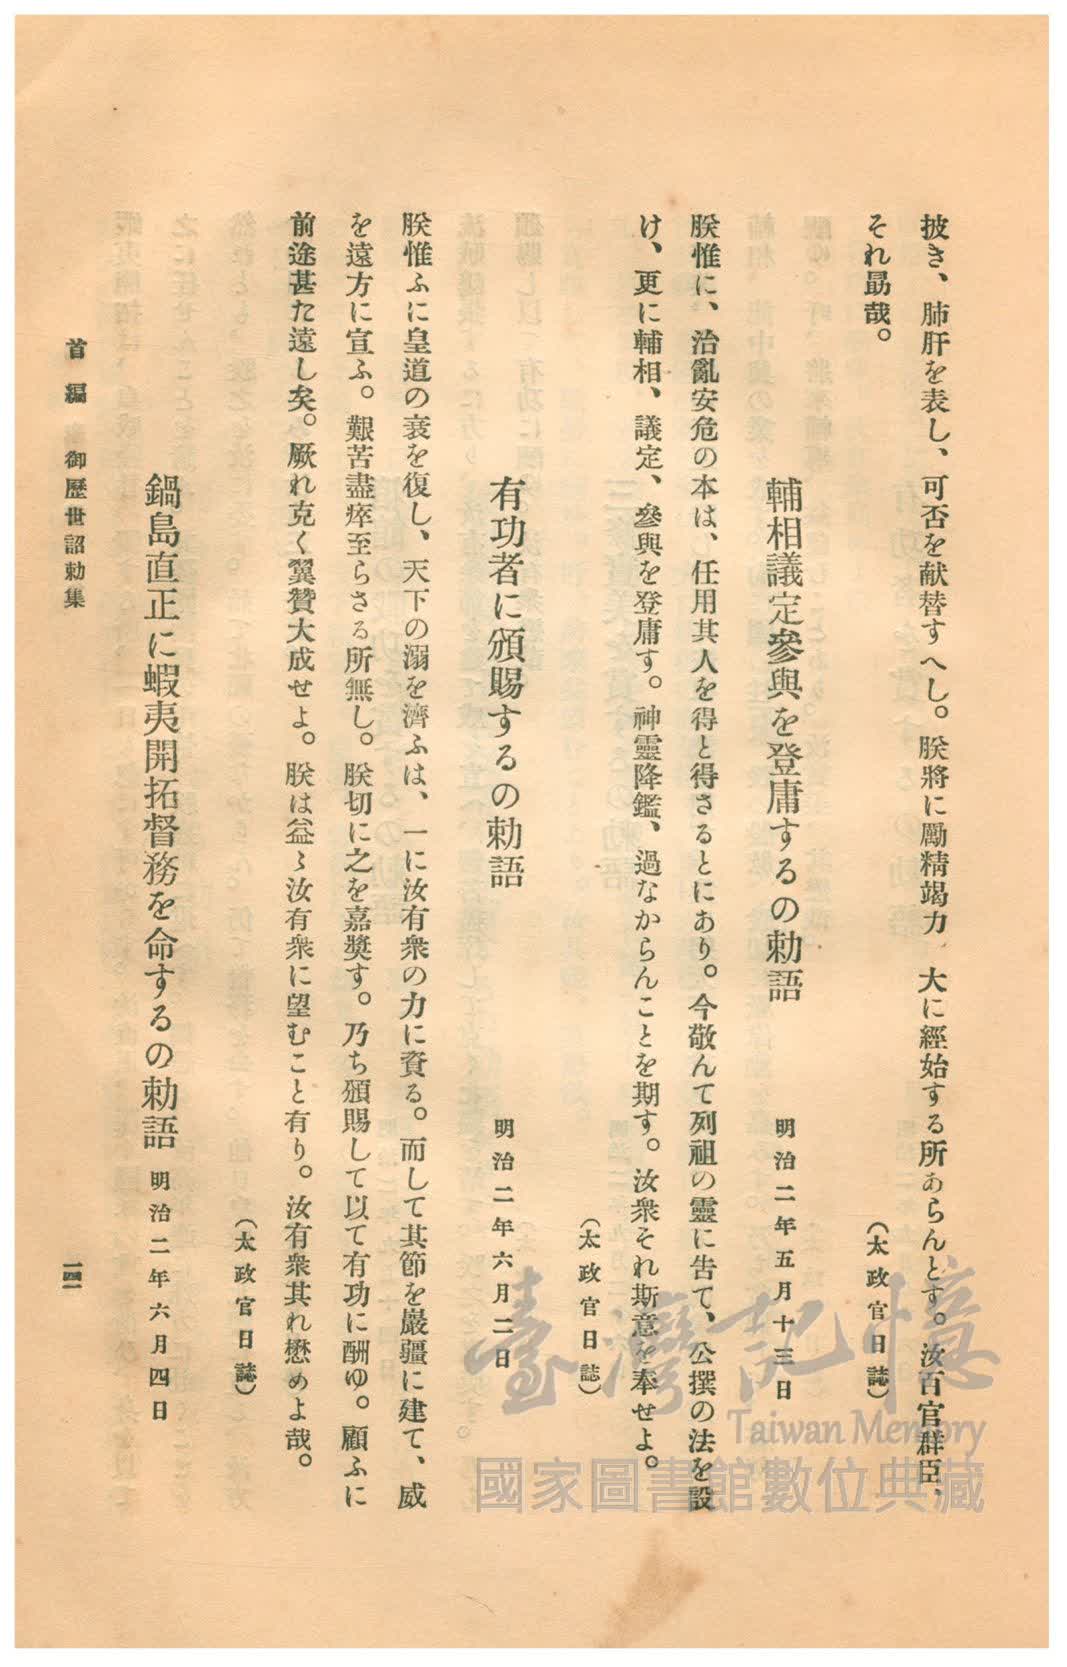 披き、肺肝を表し、可否を献替すへし。朕將に勵精竭力、大に經始する所あらんとす。汝百官群臣、
それ勗哉。
（太政官日誌）
輔相議定參與を登庸するの勅語　明治二年五月十三日
朕惟に、治亂安危の本は、任用其人を得と得さるとにあり。今敬んて列祖の靈に告て、公撰の法を設
け、更に輔相、議定、參與を登庸す。神靈降鑑、過なからんことを期す。汝衆それ斯意を奉せよ。
（太政官日誌）
有功者に頒賜するの勅語　明治二年六月二日
朕惟ふに皇道の衰を復し、天下の溺を濟ふは、一に汝有衆の力に資る。而して其節を嚴疆に建て、威
を遠方に宣ふ。艱苦盡瘁至らさる所無し。朕切に之を嘉奬す。乃ち頒賜して以て有功に酬ゆ。顧ふに
前途甚た遠し矣。厥れ克く翼贊大成せよ。朕は益〻汝有衆に望むこと有り。汝有衆其れ懋めよ哉。
（太政官日誌）
鍋島直正に蝦夷開拓督務を命するの勅語　明治二年六月四日
首編　御歷世詔勅集
一四一
臺灣記憶
Taiwan Memory
國家圖書館數位典藏